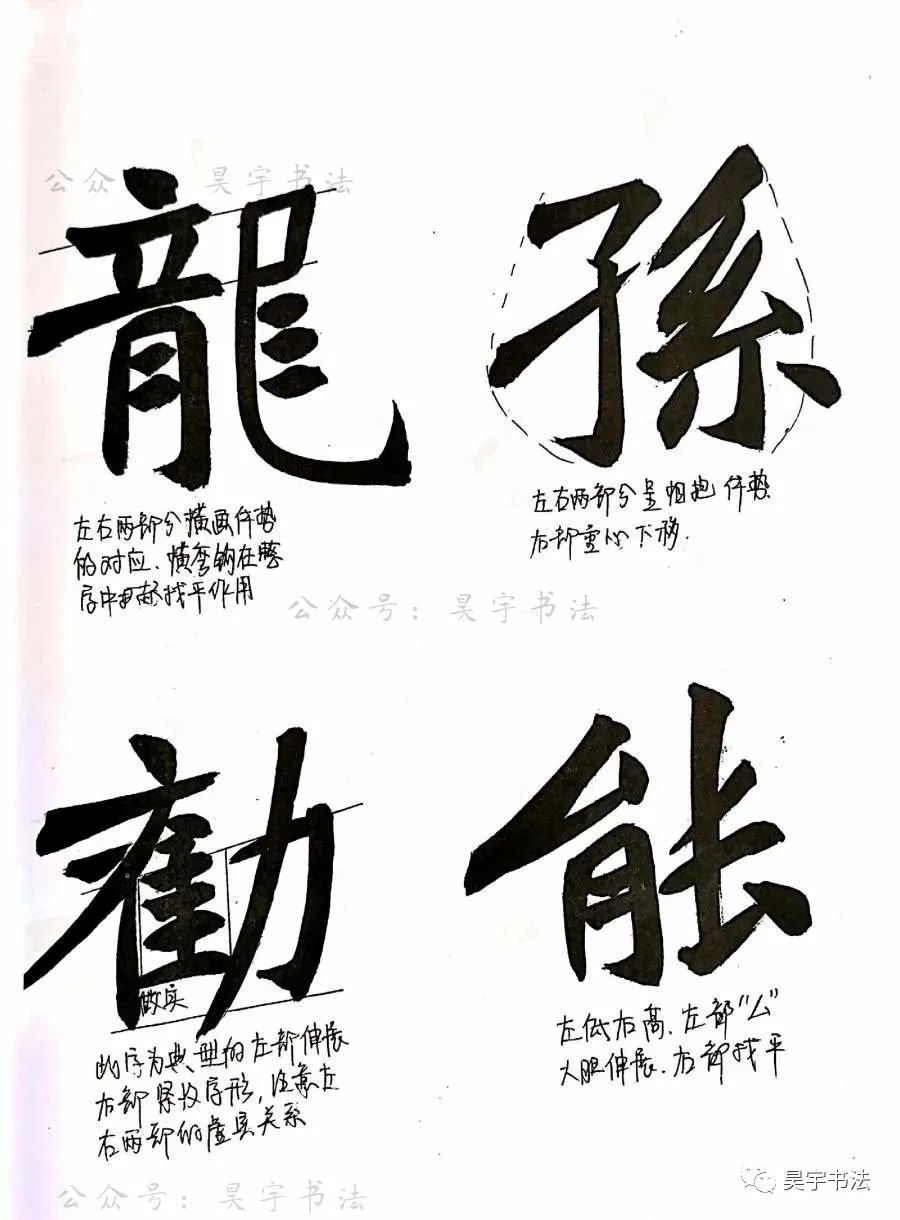 公众 昊宇书法
龍
孫
左右两部分横画伸势
的对应、横弯钩在整
字中 找平作用
左右两部分呈相抱伸势
右部重心下移.
公众号：昊宇书法
勸
能
做实
此字为典型的左部伸展
右部紧收字形，注意左
右两部的虚实关系
左低右高、左部“厶”
大胆伸展、右部找平
公众号：昊宇书法
昊宇书法